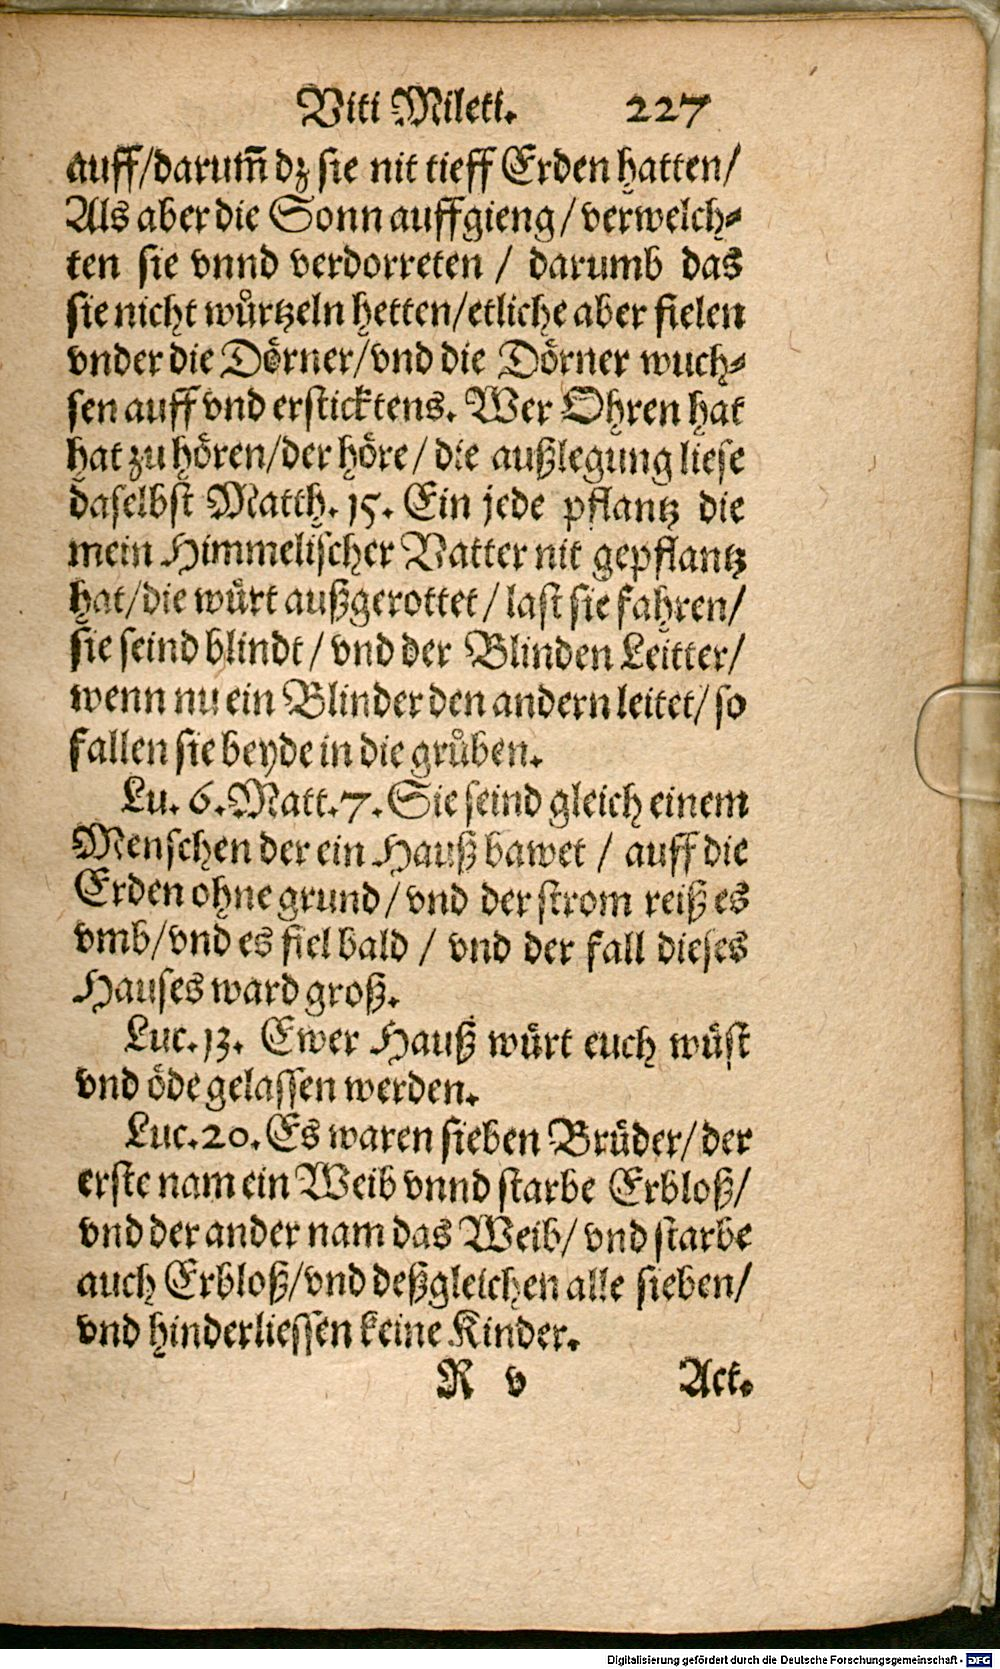 Viti Mileti. 227
auff/darum̃ dz sie nit tieff Erden hatten/
Als aber die Sonn auffgieng/ verwelch⸗
ten sie vnnd verdorreten / darumb das
sie nicht wuͤrtzeln hetten/etliche aber fielen
vnder die Doͤrner/vnd die Doͤrner wuch⸗
sen auff vnd ersticktens. Wer Ohren hat
hat zu hoͤren/der hoͤre/ die außlegung liese
daselbst Matth. 15. Ein jede pflantz die
mein Himmelischer Vatter nit gepflantz
hat/die wuͤrt außgerottet/ last sie fahren/
sie seind blindt/ vnd der Blinden Leitter/
wenn nu ein Blinder den andern leitet/ so
fallen sie beyde in die gruͤben.
Lu. 6. Matt. 7. Sie seind gleich einem
Menschen der ein Hauß bawet / auff die
Erden ohne grund/ vnd der strom reiß es
vmb/vnd es fiel bald / vnd der fall dieses
Hauses ward groß.
Luc. 13. Ewer Hauß wuͤrt euch wuͤst
vnd oͤde gelassen werden.
Luc. 20. Es waren sieben Bruͤder/ der
erste nam ein Weib vnnd starbe Erbloß/
vnd der ander nam das Weib/ vnd starbe
auch Erbloß/vnd deßgleichen alle sieben/
vnd hinderliessen keine Kinder.
R v Act.
Digitalisierung gefördert durch die Deutsche Forschungsgemeinschaft - DFG